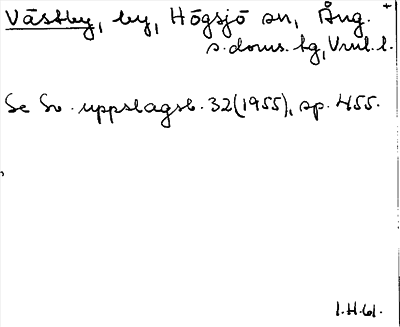 Västby, by, Högsjö sn, Ång. +
s. doms. tg, Vnl. l.
Se Sv. uppslagsb. 32 (1955), sp. 455.
1.H.61.